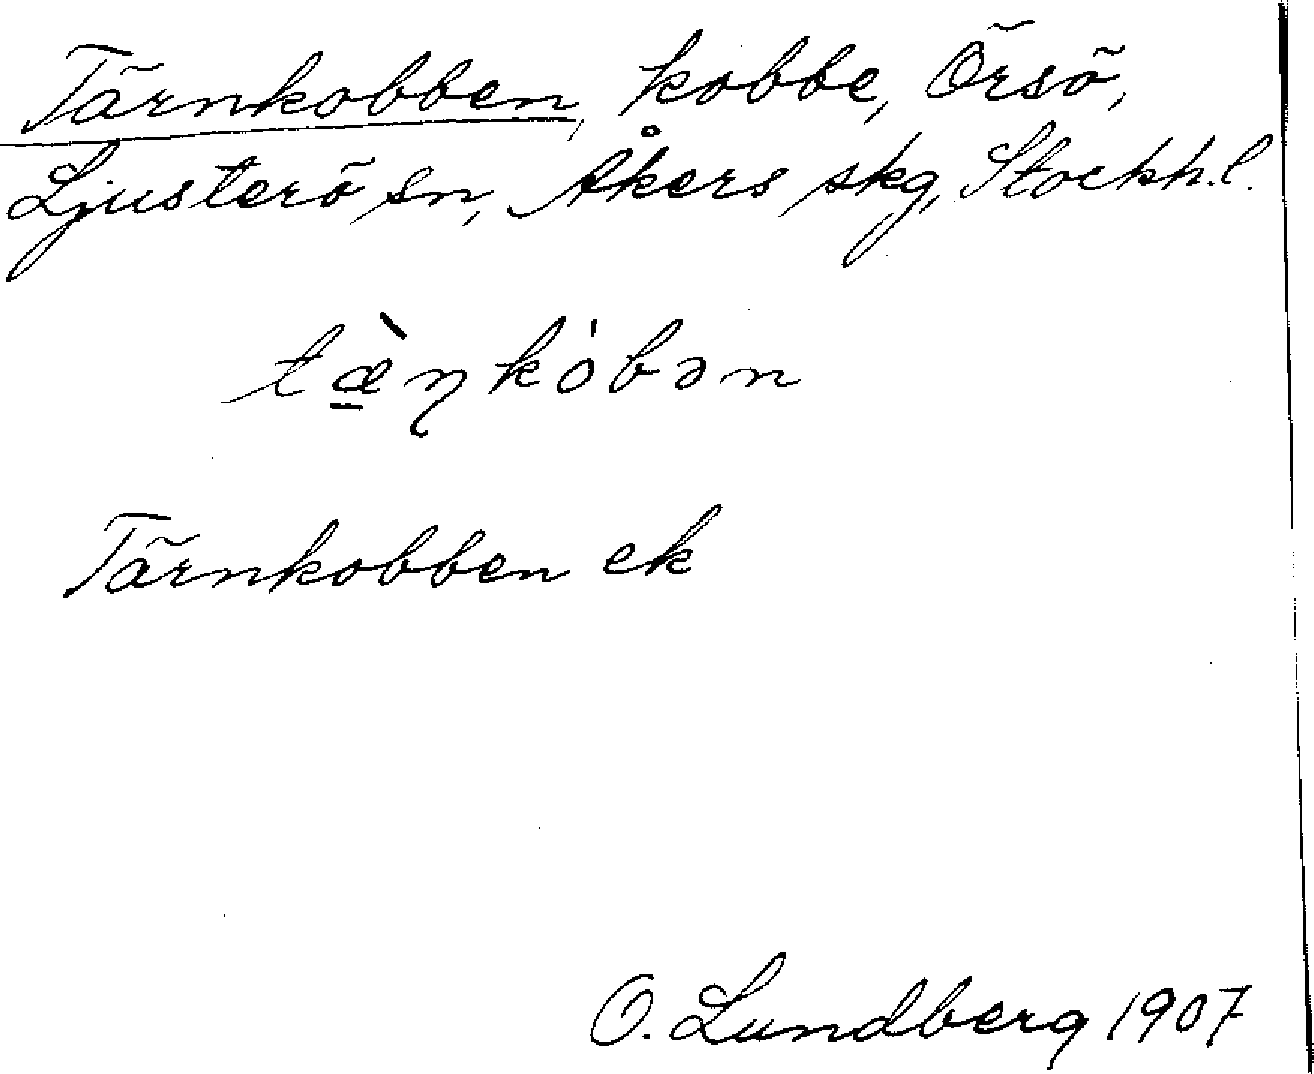 Tärnkobben, kobbe, Örsö,
Ljusterö sn, Åkers skg, Stockh. l.
tæ̱̀ŋkȯbən
Tärnkobben ek
O. Lundberg 1907